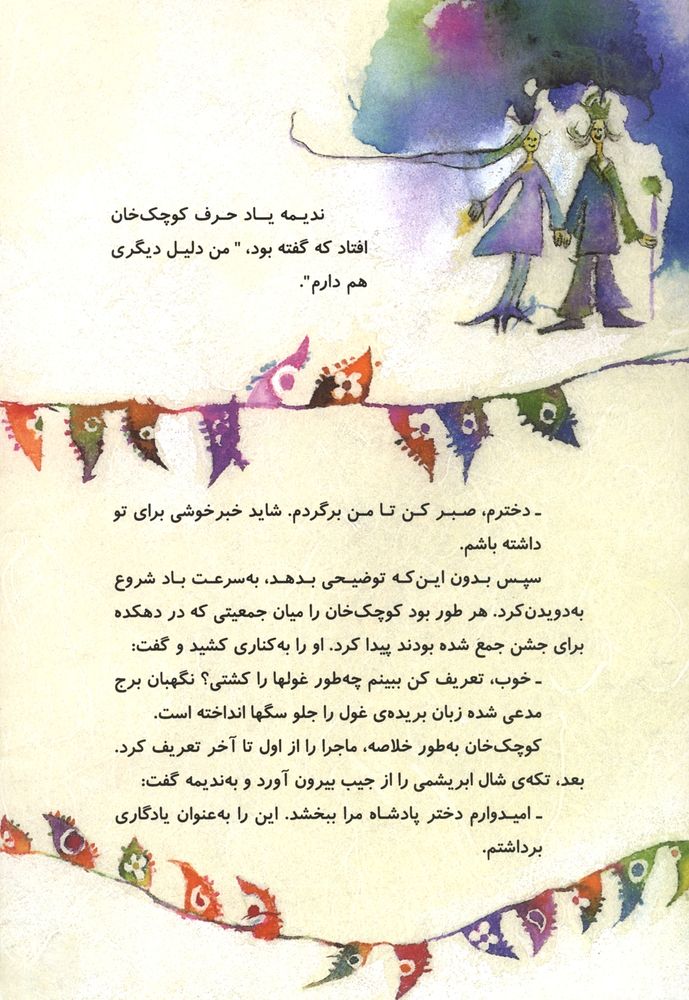 ندیمه یاد حرف کوچک‌خان
افتاد که گفته بود، " من دلیل دیگری
هم دارم".
ـ دخترم، صبر کن تا من برگردم. شاید خبرخوشی برای تو
داشته باشم.
سپس بدون این‌که توضیحی بدهد، به‌سرعت باد شروع
به‌دویدن‌کرد. هر طور بود کوچک‌خان را میان جمعیتی که در دهکده
برای جشن جمع شده بودند پیدا کرد. او را به‌کناری کشید و گفت:
ـ خوب، تعریف کن ببینم چه‌طور غولها را کشتی؟ نگهبان برج
مدعی شده زبان بریده‌ی غول را جلو سگها انداخته است.
کوچک‌خان به‌طور خلاصه، ماجرا را از اول تا آخر تعریف کرد.
بعد، تکه‌ی شال ابریشمی را از جیب بیرون آورد و به‌ندیمه گفت:
ـ امیدوارم دختر پادشاه مرا ببخشد. این را به‌عنوان یادگاری
برداشتم.